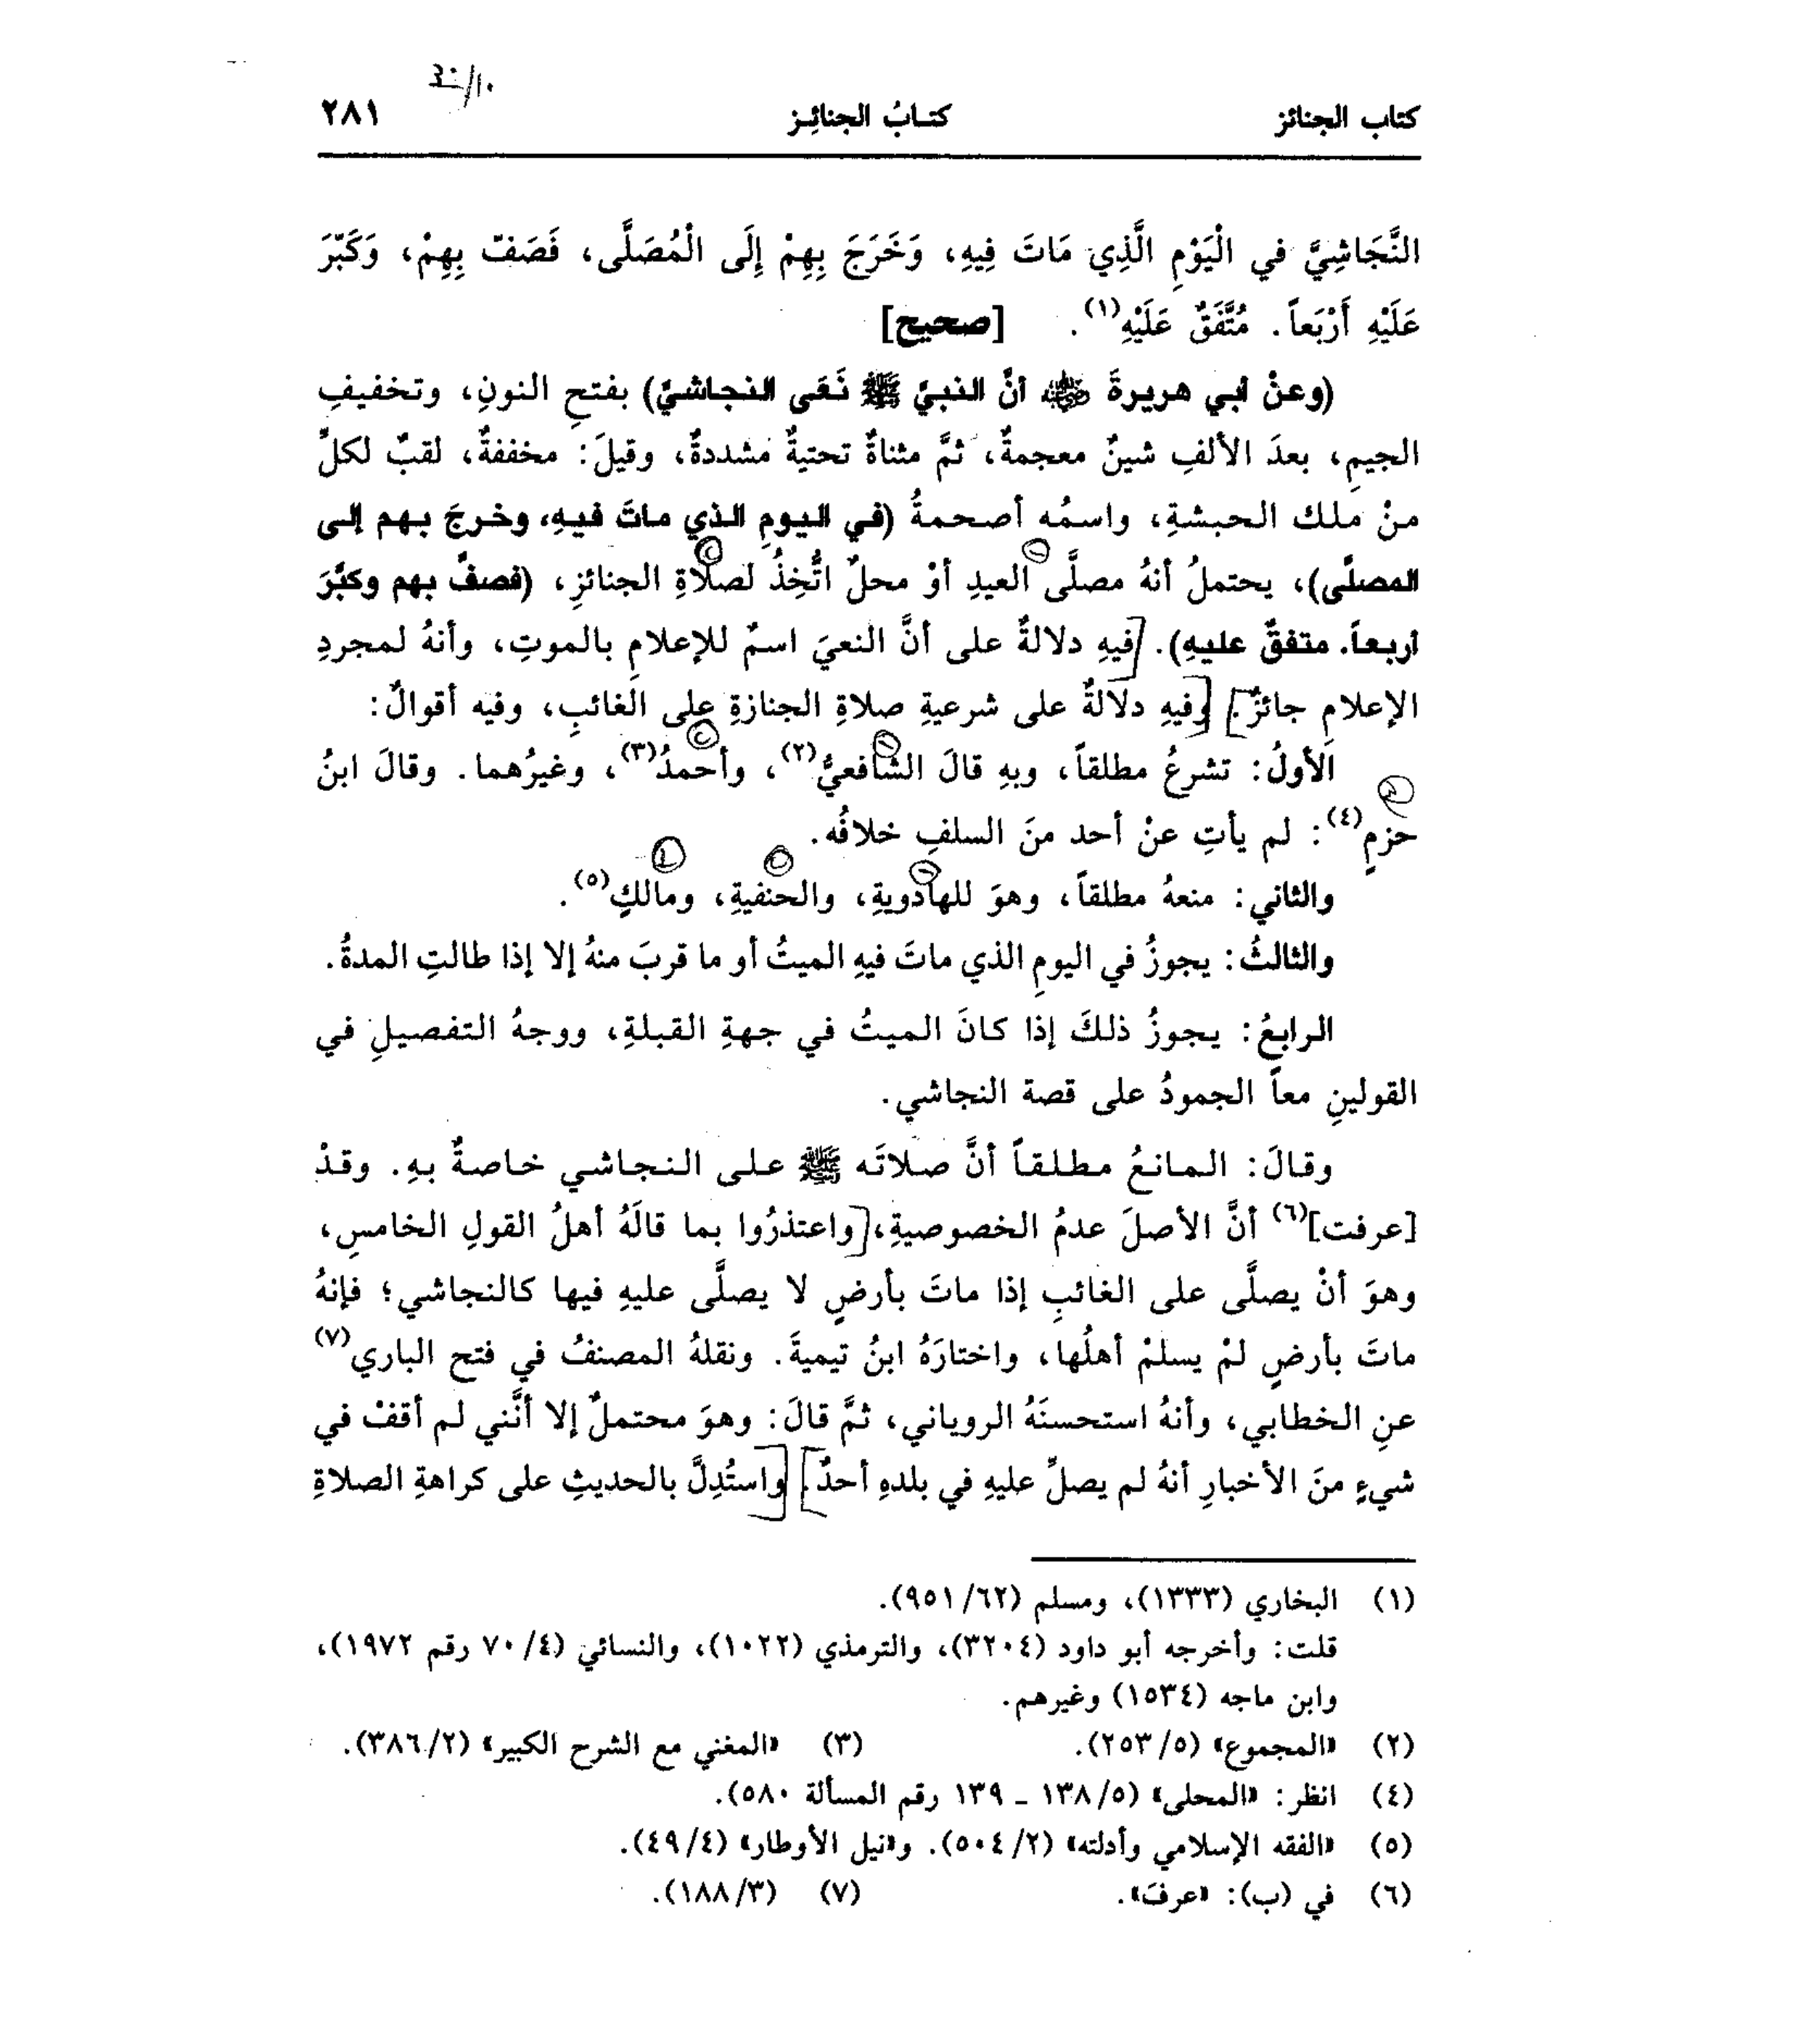 كتاب الجنائز كتـابُ الجنائِـز ٢٨١
النَّجَاشِيَّ في الْيَوْمِ الَّذِي مَاتَ فِيهِ، وَخَرَجَ بِهِمْ إِلَى الْمُصَلَّى، فَصَفّ بِهِمْ، وَكَبّرَ
عَلَيْهِ أَرْبَعاً. مُتَّفَقٌ عَلَيْهِ(١). [صحيح]
(وعنْ أبي هريرةَ رضي الله عنه أنَّ النبيَّ ﷺ نَعَى النجاشيَّ) بفتحِ النونِ، وتخفيفِ
الجيمِ، بعدَ الألفِ شينٌ معجمةٌ، ثمَّ مثناةٌ تحتيةٌ مشددةٌ، وقيلَ: مخففةٌ، لقبٌ لكلِّ
منْ ملك الحبشةِ، واسمُه أصحمةُ (في اليومِ الذي ماتَ فيهِ، وخرجَ بهم إلى
المصلَّى)، يحتملُ أنهُ مصلَّى العيدِ أوْ محلٌ اتُّخِذُ لصلاةِ الجنائزِ، (فصفَّ بهم وكبَّرَ
أربعاً. متفقٌ عليهِ). فيهِ دلالةٌ على أنَّ النعيَ اسمٌ للإعلامِ بالموتِ، وأنهُ لمجردِ
الإعلامِ جائزٌ. وفيهِ دلالةٌ على شرعيةِ صلاةِ الجنازةِ على الغائبِ، وفيه أقوالٌ:
الأولُ: تشرعُ مطلقاً، وبهِ قالَ الشافعيُّ(٢)، وأحمدُ(٣)، وغيرُهما. وقالَ ابنُ
حزمٍ(٤): لم يأتِ عنْ أحد منَ السلفِ خلافُه.
والثاني: منعهُ مطلقاً، وهوَ للهادويةِ، والحنفيةِ، ومالكٍ(٥).
والثالثُ: يجوزُ في اليومِ الذي ماتَ فيهِ الميتُ أو ما قربَ منهُ إلا إذا طالتِ المدةُ.
الرابعُ: يجوزُ ذلكَ إذا كانَ الميتُ في جهةِ القبلةِ، ووجهُ التفصيلِ في
القولينِ معاً الجمودُ على قصة النجاشي.
وقالَ: المانعُ مطلقاً أنَّ صلاتَه ﷺ على النجاشي خاصةٌ بهِ. وقدْ
[عرفت](٦) أنَّ الأصلَ عدمُ الخصوصيةِ، واعتذرُوا بما قالَهُ أهلُ القولِ الخامسِ،
وهوَ أنْ يصلَّى على الغائبِ إذا ماتَ بأرضٍ لا يصلَّى عليهِ فيها كالنجاشي؛ فإنهُ
ماتَ بأرضٍ لمْ يسلمْ أهلُها، واختارَهُ ابنُ تيميةَ. ونقلهُ المصنفُ في فتح الباري(٧)
عنِ الخطابي، وأنهُ استحسنَهُ الروياني، ثمَّ قالَ: وهوَ محتملٌ إلا أنَّني لم أقفْ في
شيءٍ منَ الأخبارِ أنهُ لم يصلِّ عليهِ في بلدهِ أحدٌ. واستُدِلَّ بالحديثِ على كراهةِ الصلاةِ
(١) البخاري (١٣٣٣)، ومسلم (٦٢/ ٩٥١).
قلت: وأخرجه أبو داود (٣٢٠٤)، والترمذي (١٠٢٢)، والنسائي (٤/ ٧٠ رقم ١٩٧٢)،
وابن ماجه (١٥٣٤) وغيرهم.
(٢) «المجموع» (٥/ ٢٥٣). (٣) «المغني مع الشرح الكبير» (٢/ ٣٨٦).
(٤) انظر: «المحلى» (٥/ ١٣٨ ـ ١٣٩ رقم المسألة ٥٨٠).
(٥) «الفقه الإسلامي وأدلته» (٢/ ٥٠٤). و«نيل الأوطار» (٤/ ٤٩).
(٦) في (ب): «عرفَ». (٧) (٣/ ١٨٨).